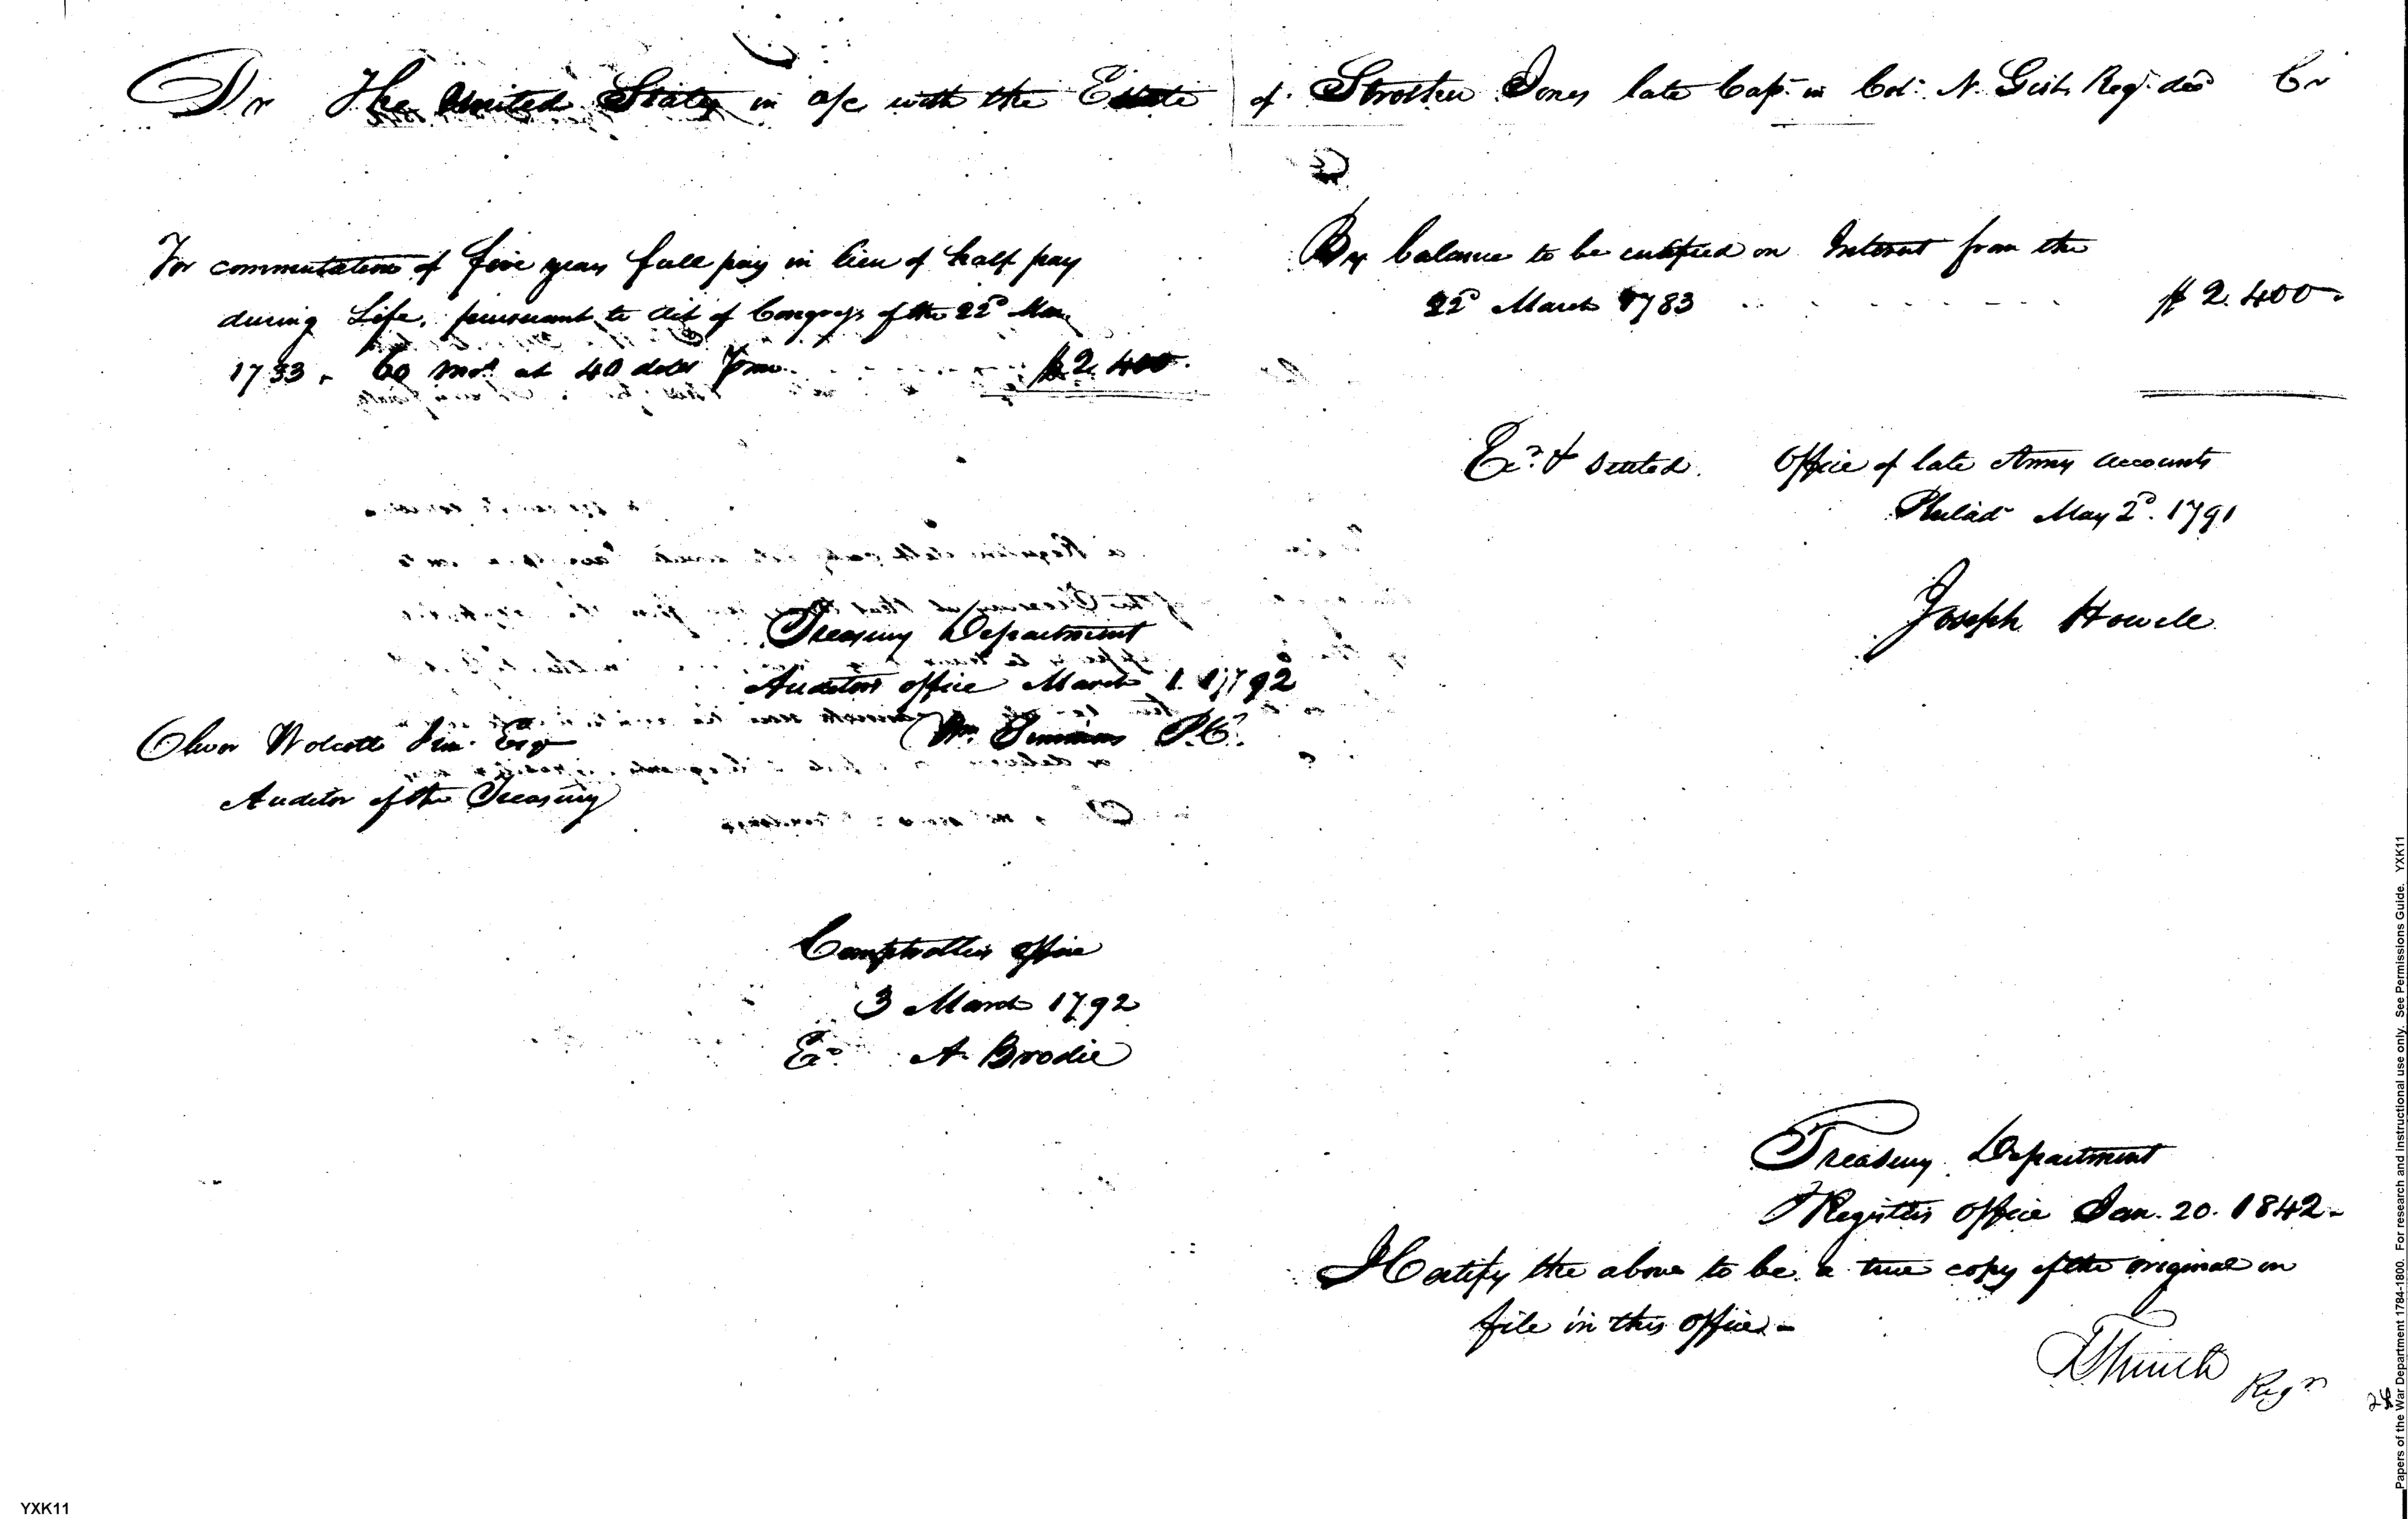 Dr The United States in a/c with the Estate of Strother Jones late Capt. in Col. N. Gist Reg. decd Cr
For commutation of five years full pay in lieu of half pay
during Life, pursuant to Act of Congress of the 22d Mar
1783. 60 mos. at 40 dolls p mo. $2.400.
By balance to be certified on Interest from the
22d March 1783 $2.400.
Exd. & settled. Office of late Army accounts
Philada May 2d. 1791
Joseph Howell
Treasury Department
Auditors office March 1. 1792
Wm. Simmons P.C.
Oliver Wolcott Jun. Esq
Auditor of the Treasury
Comptrollers office
3 March 1792
Exd. A. Brodie
Treasury Department
Registers Office Jan. 20. 1842.
I Certify the above to be a true copy of the original on
file in this office.
T L Smith Regr
26
YXK11
Papers of the War Department 1784-1800. For research and instructional use only. See Permissions Guide. YXK11